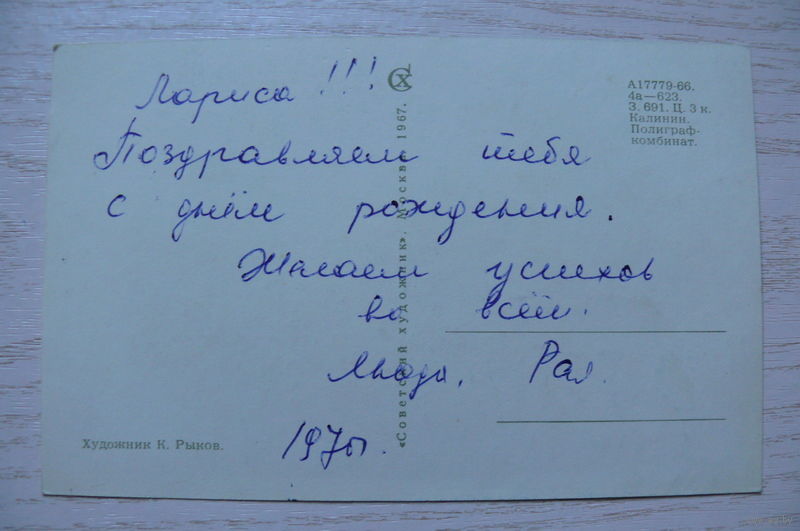 Лариса!!!
Поздравляем тебя
с днём рождения.
Желаем успехов
во всём.
Люда, Рая.
СХ
А17779-66.
4а—623.
З. 691. Ц. 3 к.
Калинин.
Полиграф-
комбинат.
«Советский художник». Москва 1967.
Художник К. Рыков.